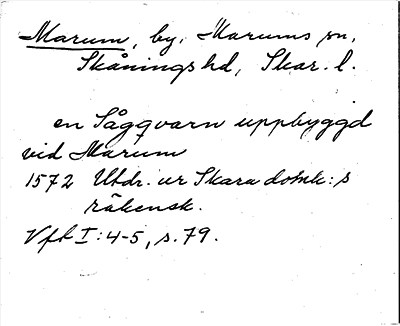 Marum, by, Marums sn,
Skånings hd, Skar. l.
en Sågqvarn uppbyggd
vid Marum
1572 Utdr. ur Skara domk:s
räkensk.
Vft I:4-5, s. 79.